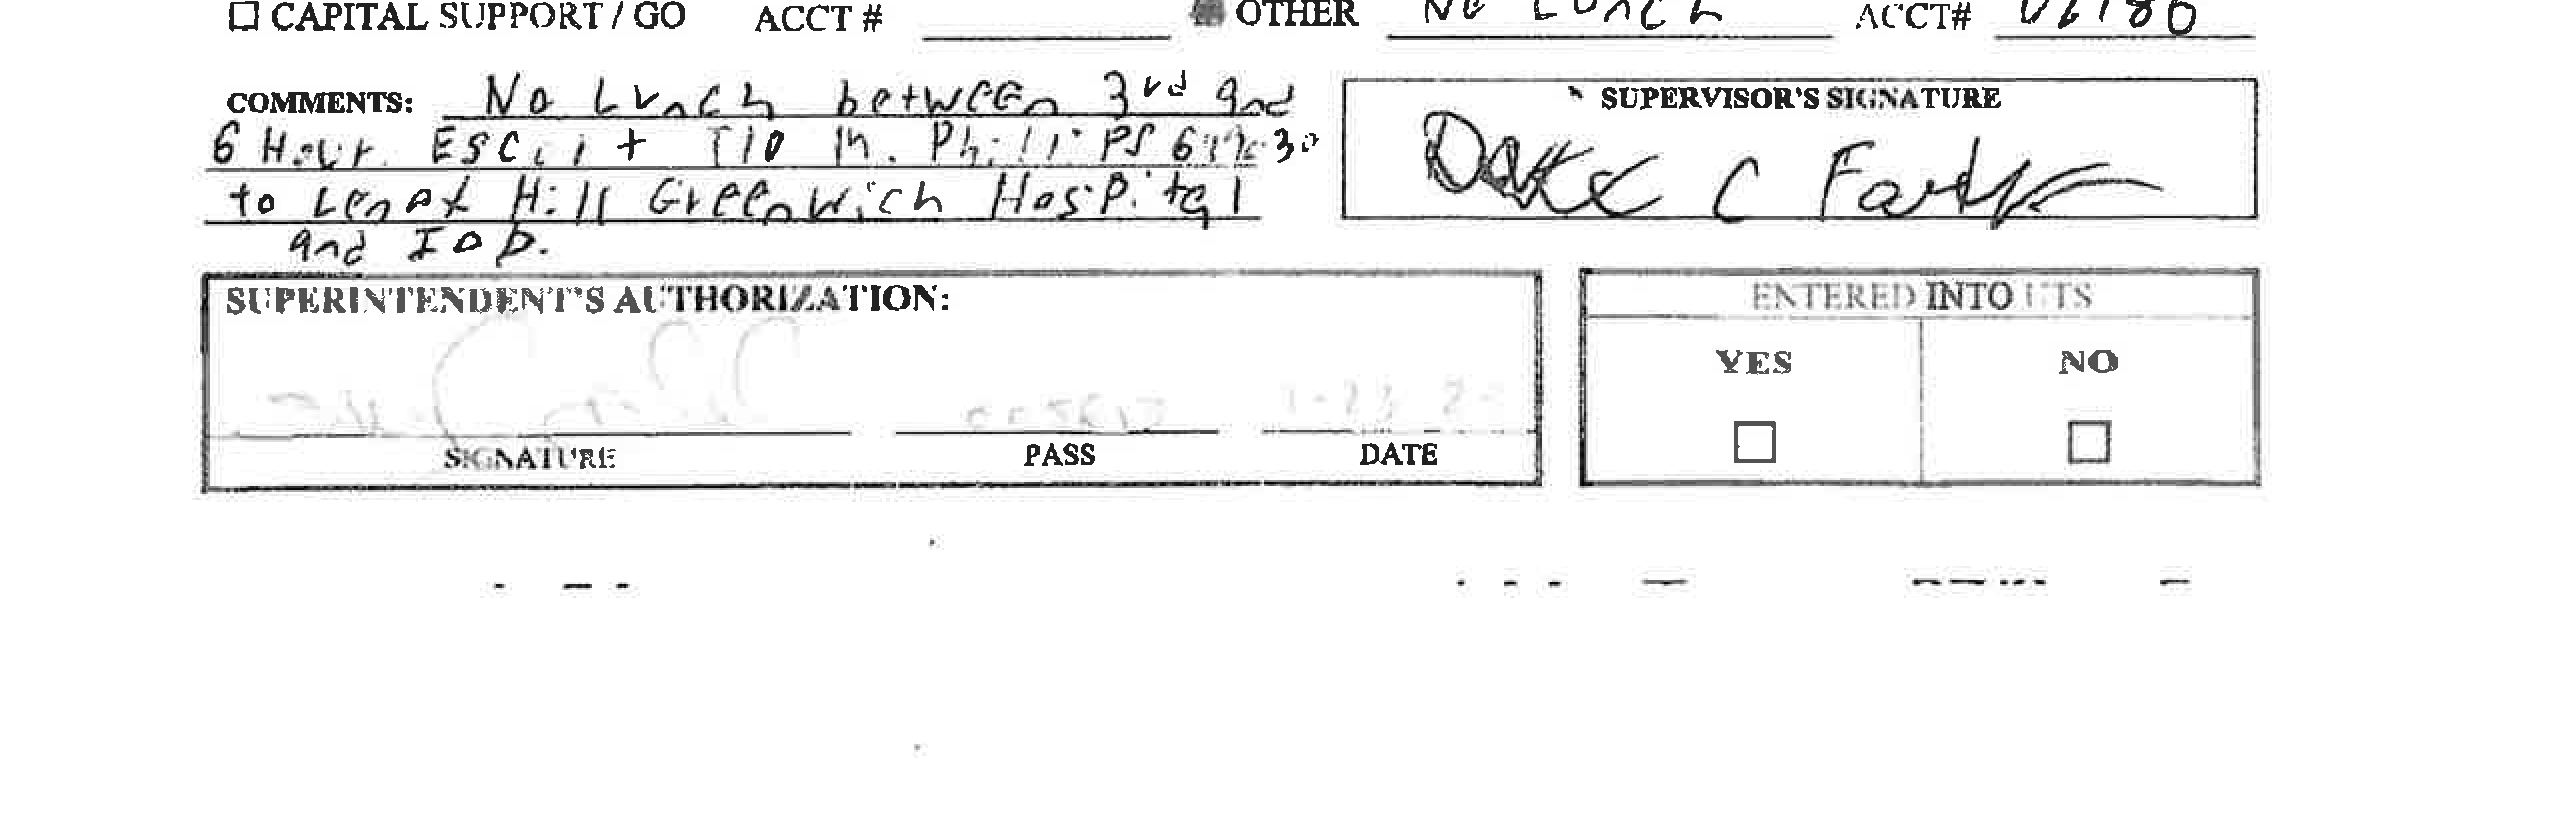 ☐ CAPITAL SUPPORT / GO ACCT # OTHER No Lunch ACCT#
COMMENTS: No Lunch between 3rd and
6 Hour. Escort T/O M. Phillips
to Lenox Hill Greenwich Hospital
and IOD.
SUPERVISOR'S SIGNATURE
SUPERINTENDENT'S AUTHORIZATION:
SIGNATURE PASS DATE
ENTERED INTO UTS
YES NO
☐ ☐